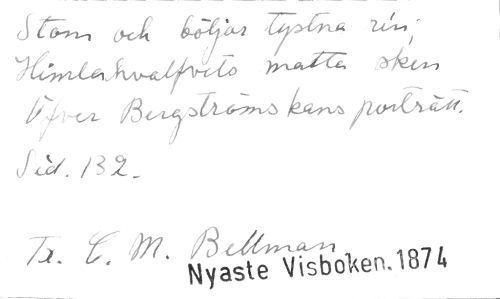 Stom och böljar tystna rin;
Himlahvalfvets matta sken
Öfver Bergströmskans porträtt.
Sid. 132.
Tx. C. M. Bellman
Nyaste Visboken. 1874